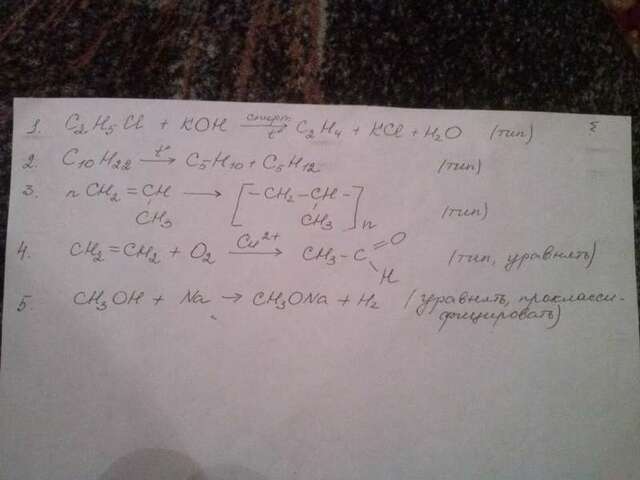 1. C₂H₅Cl + KOH спирт. t° → C₂H₄ + KCl + H₂O (тип)
2. C₁₀H₂₂ t° → C₅H₁₀ + C₅H₁₂ (тип)
3. n CH₂ = CH → [ - CH₂ - CH - ]n
CH₃ CH₃ (тип)
4. CH₂ = CH₂ + O₂ Cu²⁺ → CH₃ - C = O (тип, уравнять)
H
5. CH₃OH + Na → CH₃ONa + H₂ (уравнять, проклассифицировать)